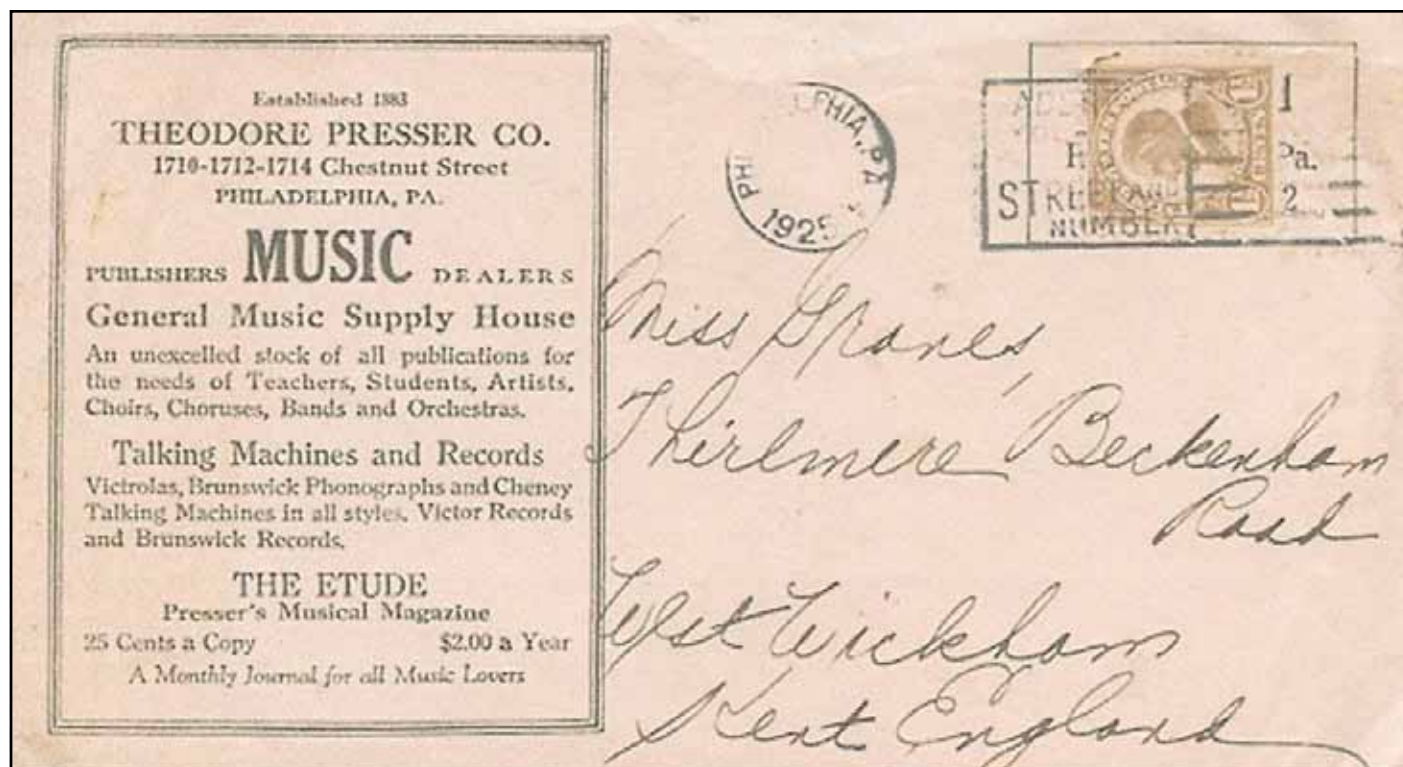 Established 1883
THEODORE PRESSER CO.
1710-1712-1714 Chestnut Street
PHILADELPHIA, PA.
PUBLISHERS MUSIC DEALERS
General Music Supply House
An unexcelled stock of all publications for
the needs of Teachers, Students, Artists,
Choirs, Choruses, Bands and Orchestras.
Talking Machines and Records
Victrolas, Brunswick Phonographs and Cheney
Talking Machines in all styles. Victor Records
and Brunswick Records.
THE ETUDE
Presser's Musical Magazine
25 Cents a Copy $2.00 a Year
A Monthly Journal for all Music Lovers
PA
1925
1
Pa.
2
STREET AND
NUMBER
Miss
Thirlmere Beckenham
Road
West Wickham
Kent England